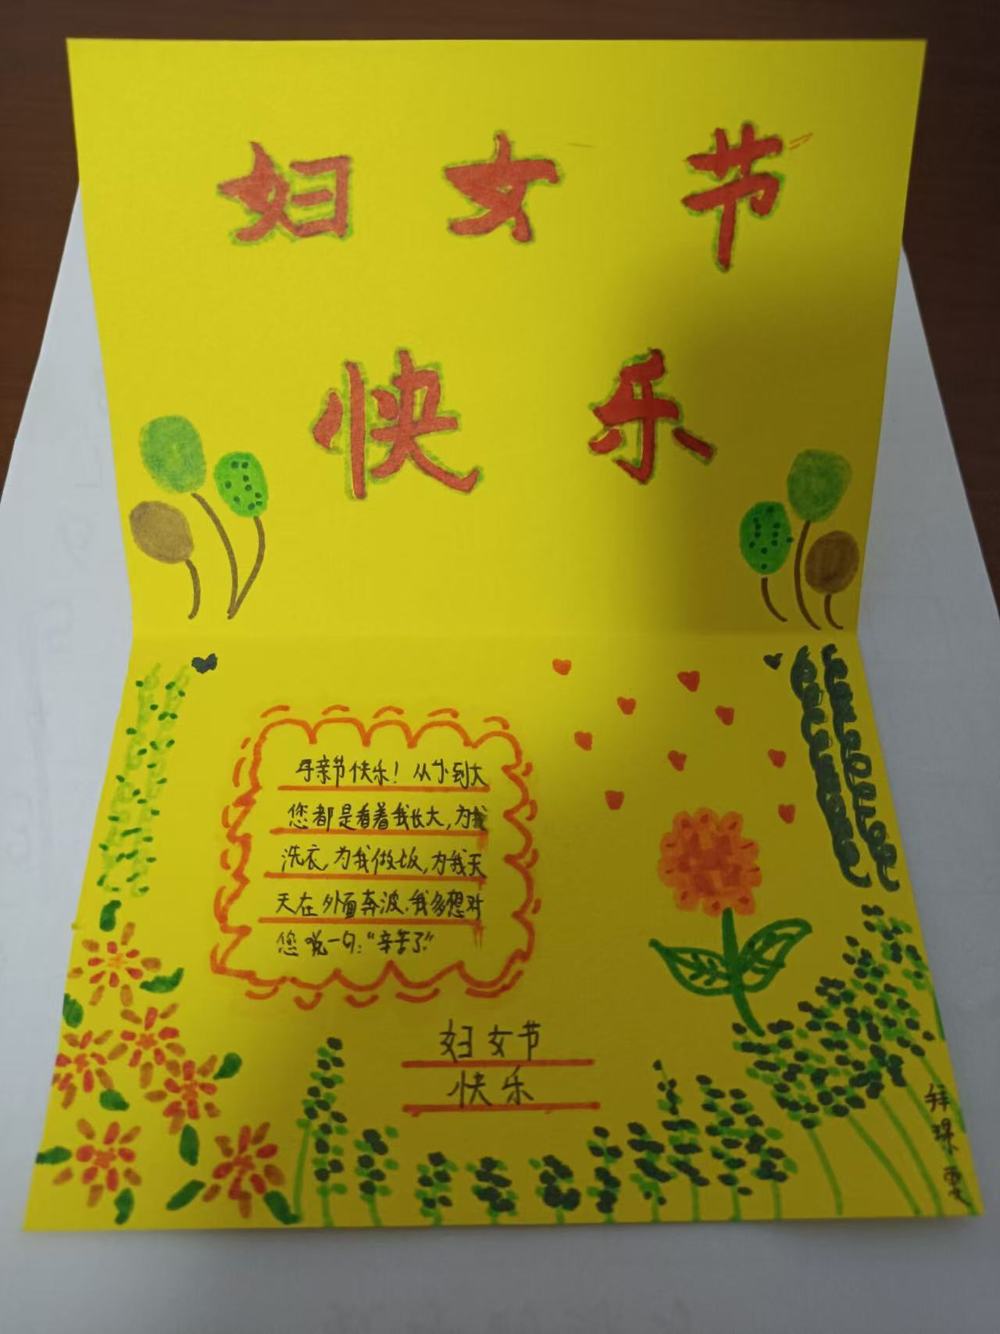 妇女节
快乐
母亲节快乐！从小到大
您都是看着我长大，为我
洗衣，为我做饭，为我天
天在外面奔波，我多想对
您说一句：“辛苦了”
妇女节
快乐